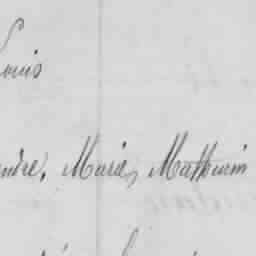 Louis
andre, Marie, Mathurin